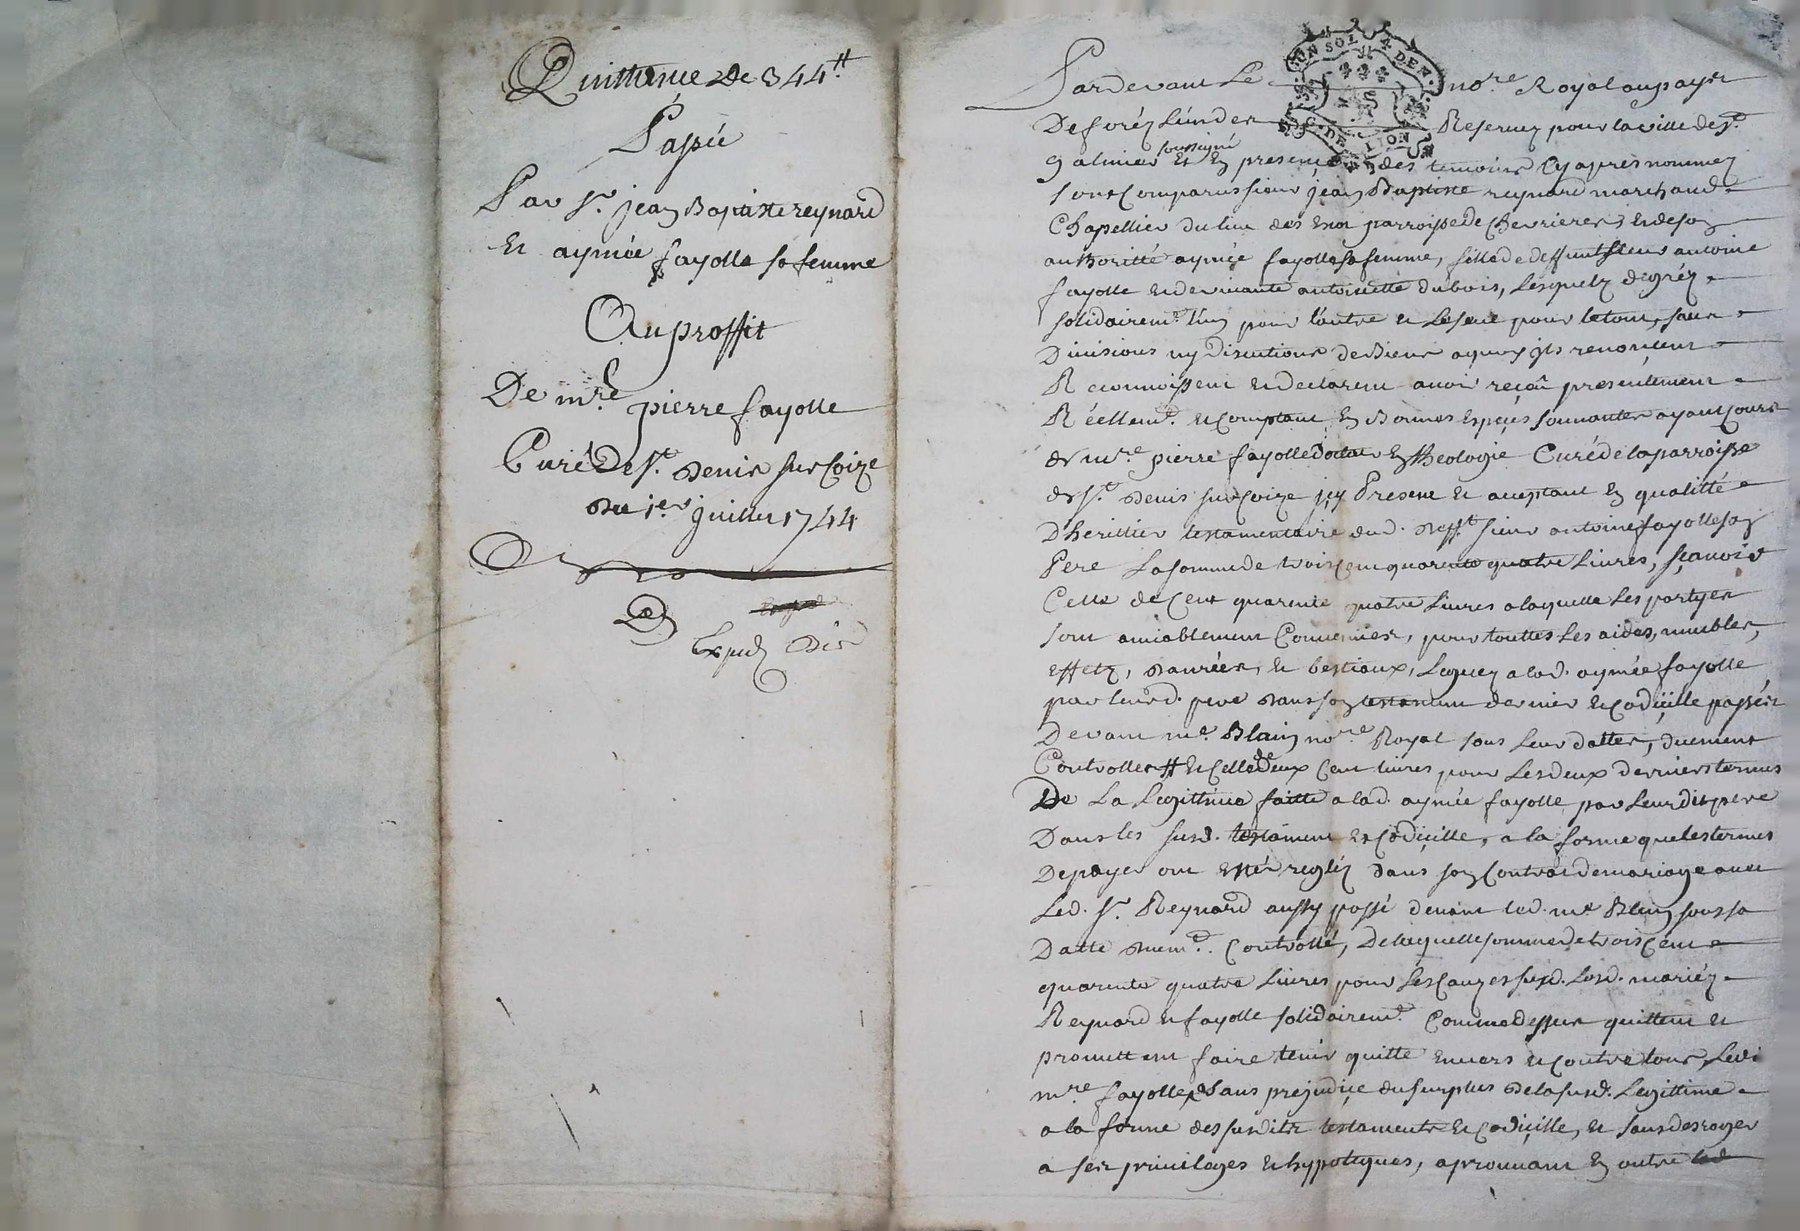 Quittance De 344ᵗᵗ
Passée
Par Sr. jean Baptiste reynard
Et aymée fayolle sa femme
Au proffit
De mre pierre fayolle
Curé De St. Denis sur Coize
Du 1er juillet 1744
Expedn
UN SOL 4 DEN.
G. DE LION
Pardevant Le no.re Royal au pays
De foréz Reservez pour la ville de St.
galmier soussigné Et En presence des temoins Cy apres nommez
sont Comparus sieur jean Baptiste reynard marchand
Chapellier du lieu des parroisse de Chevrieres, et de son
authoritté aymée fayolle sa femme, fille de deffunt sieur antoine
fayolle et de vivante antoinette dubois, Lesquelz de gréz
solidairemt. l'un pour l'autre et Le seul pour le tout, sans
Divisions ny discutions de Biens a quoy jls renoncent
Reconnoissent et declarent avoir reçeu presentement
Réellemt. et Comptant En Bonnes Especes sonnantes ayant Cours
de mre. pierre fayolle Docteur En theologie Curé de la parroisse
de St. Denis sur Coize jcy Present et aceptant En qualitté
D'herittier testamentaire dud. defft. sieur antoine fayolle son
Pere La somme de trois Cent quarente quatre Livres, sçavoir
Celle de Cent quarente quatre Livres a laquelle Les partyes
sont amiablement Convenues, pour touttes Les aides, meubles,
effetz, danrées, et bestiaux, Leguez a lad. aymée fayolle
par leurd. pere dans son testament dernier et Codicille passés
Devant me. Blain no.re Royal sous Leur dattes, duement
Controllés et Celle de deux Cent livres pour Les deux derniers termes
De La Legittime faitte a lad. aymée fayolle par Leurdit pere
Dans les susd. testament et Codicille, a la forme que les termes
De payer ont Estés regléz dans son Contrat de mariage avec
Led. Sr. Reynard aussy passé devant led. me Blain sous sa
Datte duemt. Controllé, De laquelle somme de trois Cent
quarente quatre Livres pour Les Causes susd. Lesd. mariéz
Reynard et fayolle solidairemt. Comme dessus quittent et
promettent faire tenir quitte Envers et Contre tous, Ledit
mre fayolle, sans prejudice du surplus de la susd. Legittime
a la forme des susdits testaments et Codicille, et sans desroger
a ses privileges et hypoteques, aprouvant En outre